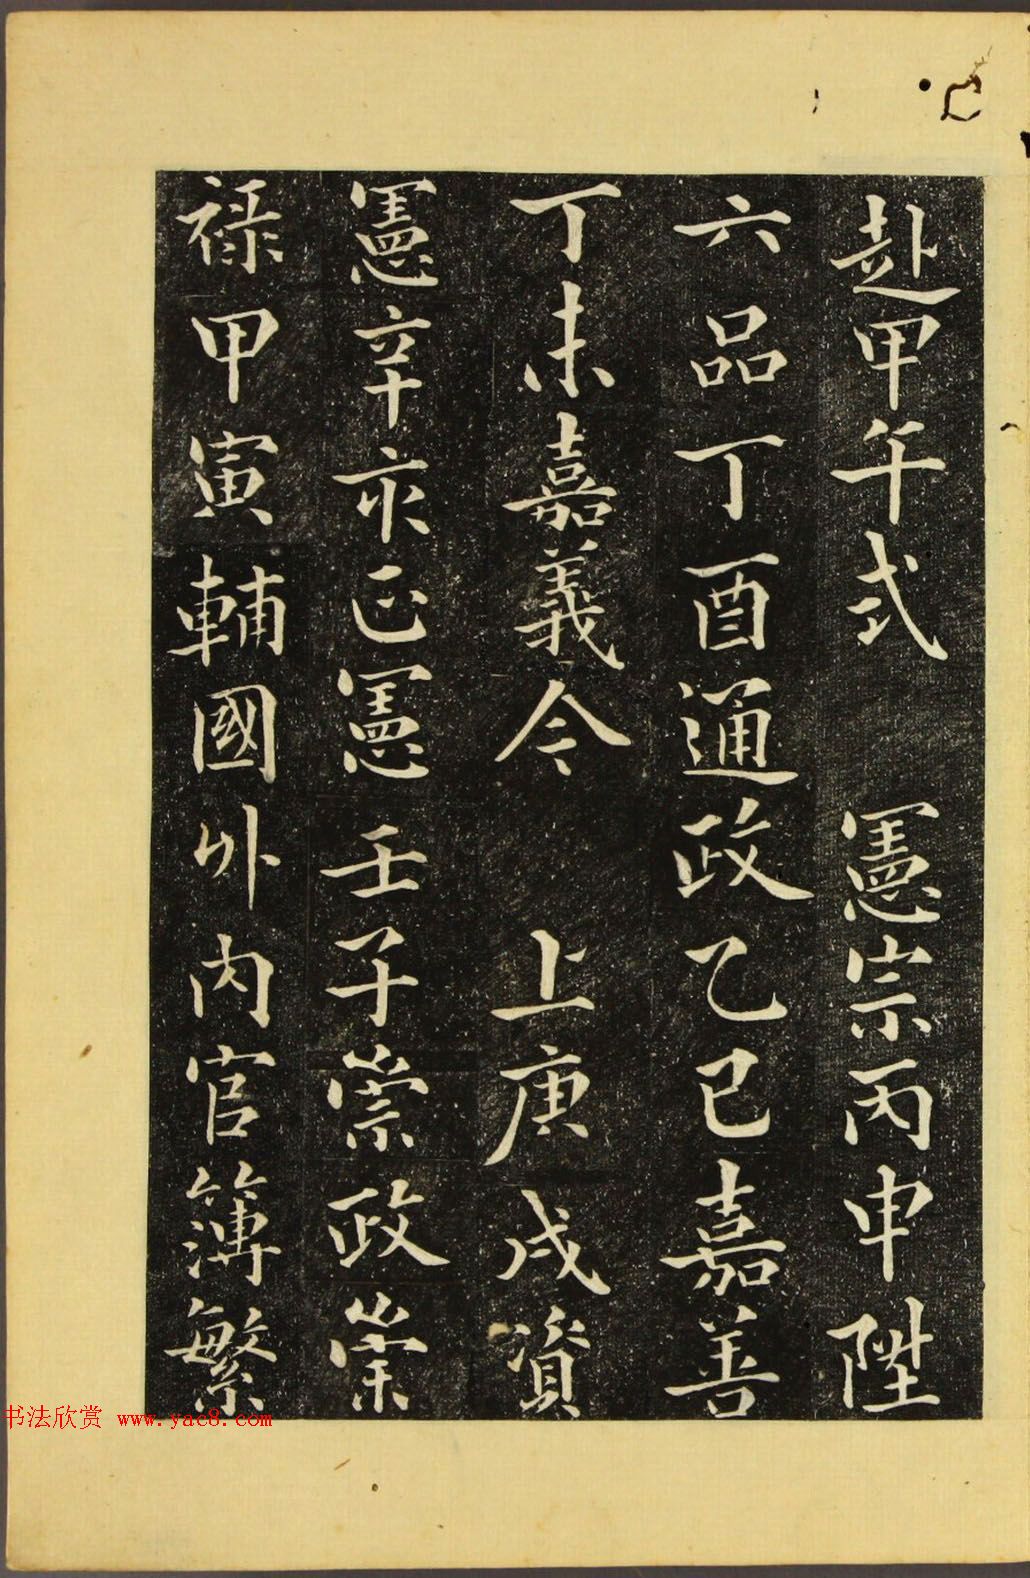 赴甲午式 憲宗丙申陞
六品丁酉通政乙巳嘉善
丁未嘉義今 上庚戌資
憲辛亥正憲壬子崇政崇
祿甲寅輔國外內官簿繁
书法欣赏 www.yac8.com